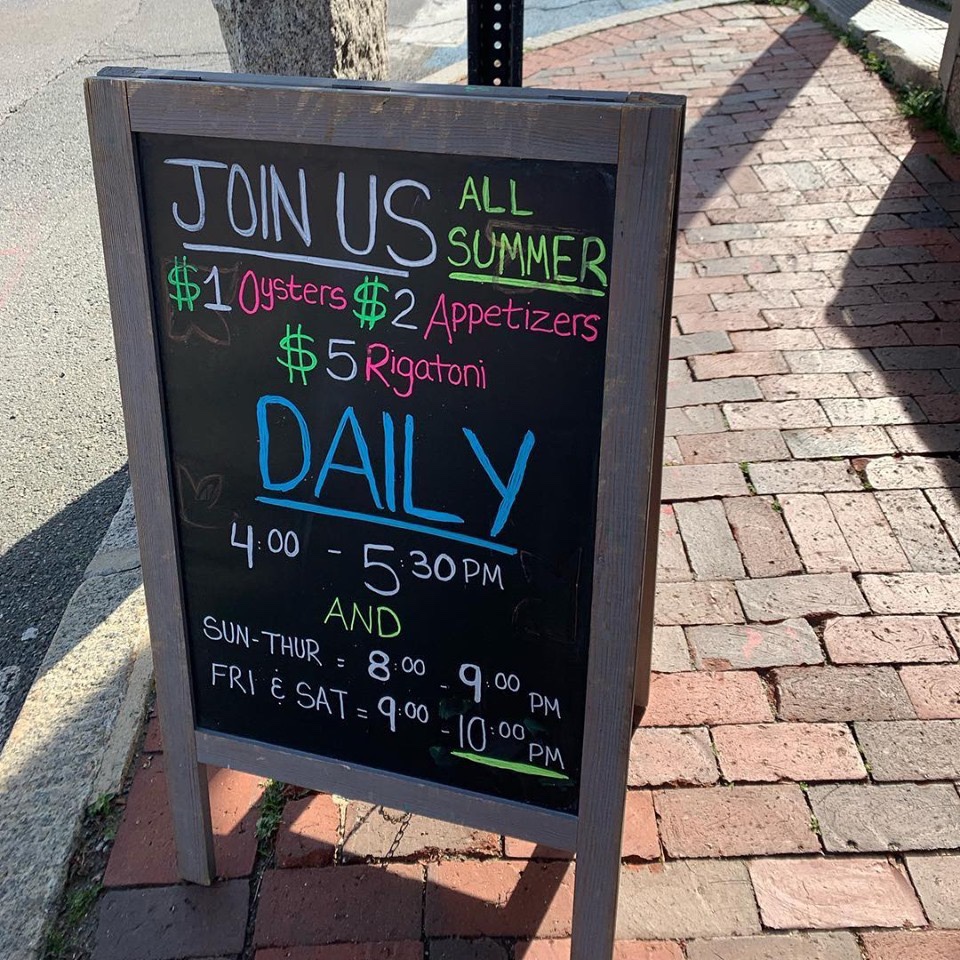 JOIN US ALL SUMMER
$1 Oysters $2 Appetizers
$5 Rigatoni
DAILY
4:00 - 5:30 PM
AND
SUN-THUR = 8:00 - 9:00 PM
FRI & SAT = 9:00 - 10:00 PM